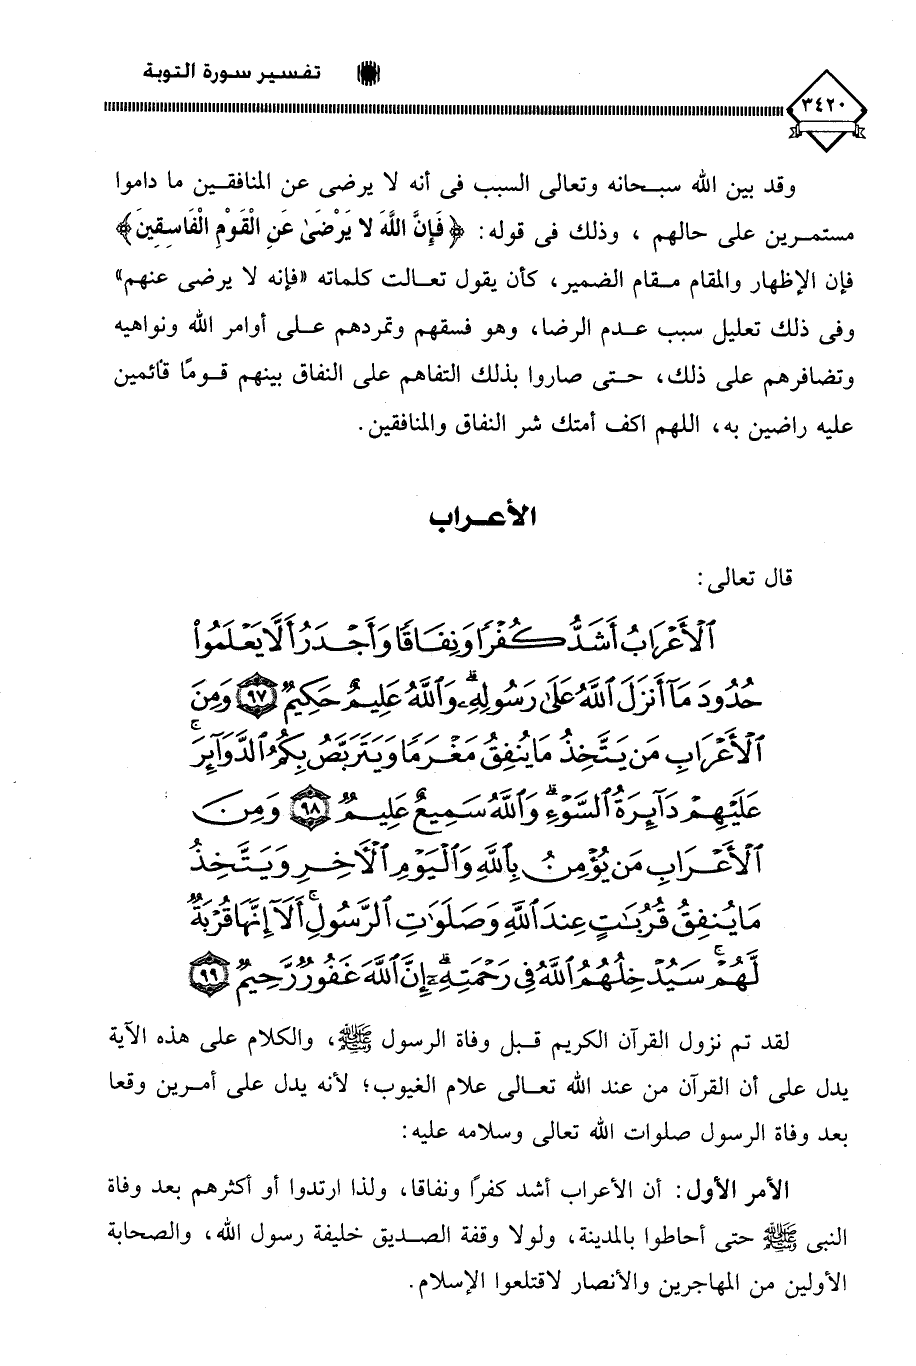 تفسير سورة التوبة
٣٤٢٠
وقد بين الله سبحانه وتعالى السبب فى أنه لا يرضى عن المنافقين ما داموا
مستمرين على حالهم ، وذلك فى قوله: ﴿ فَإِنَّ اللَّهَ لا يَرْضَىٰ عَنِ الْقَوْمِ الْفَاسِقِينَ﴾
فإن الإظهار والمقام مقام الضمير، كأن يقول تعالت كلماته «فإنه لا يرضى عنهم»
وفى ذلك تعليل سبب عدم الرضا، وهو فسقهم وتمردهم على أوامر الله ونواهيه
وتضافرهم على ذلك، حتى صاروا بذلك التفاهم على النفاق بينهم قومًا قائمين
عليه راضين به، اللهم اكف أمتك شر النفاق والمنافقين.
الأعراب
قال تعالى:
ٱلْأَعْرَابُ أَشَدُّ كُفْرًا وَنِفَاقًا وَأَجْدَرُ أَلَّا يَعْلَمُوا۟
حُدُودَ مَآ أَنزَلَ ٱللَّهُ عَلَىٰ رَسُولِهِۦۗ وَٱللَّهُ عَلِيمٌ حَكِيمٌ ﴿٩٧﴾ وَمِنَ
ٱلْأَعْرَابِ مَن يَتَّخِذُ مَا يُنفِقُ مَغْرَمًا وَيَتَرَبَّصُ بِكُمُ ٱلدَّوَآئِرَۚ
عَلَيْهِمْ دَآئِرَةُ ٱلسَّوْءِۗ وَٱللَّهُ سَمِيعٌ عَلِيمٌ ﴿٩٨﴾ وَمِنَ
ٱلْأَعْرَابِ مَن يُؤْمِنُ بِٱللَّهِ وَٱلْيَوْمِ ٱلْـَٔاخِرِ وَيَتَّخِذُ
مَا يُنفِقُ قُرُبَـٰتٍ عِندَ ٱللَّهِ وَصَلَوَٰتِ ٱلرَّسُولِۚ أَلَآ إِنَّهَا قُرْبَةٌ
لَّهُمْۚ سَيُدْخِلُهُمُ ٱللَّهُ فِى رَحْمَتِهِۦٓۗ إِنَّ ٱللَّهَ غَفُورٌ رَّحِيمٌ ﴿٩٩﴾
لقد تم نزول القرآن الكريم قبل وفاة الرسول ﷺ، والكلام على هذه الآية
يدل على أن القرآن من عند الله تعالى علام الغيوب؛ لأنه يدل على أمرين وقعا
بعد وفاة الرسول صلوات الله تعالى وسلامه عليه:
الأمر الأول: أن الأعراب أشد كفرًا ونفاقا، ولذا ارتدوا أو أكثرهم بعد وفاة
النبى ﷺ حتى أحاطوا بالمدينة، ولولا وقفة الصديق خليفة رسول الله، والصحابة
الأولين من المهاجرين والأنصار لاقتلعوا الإسلام.